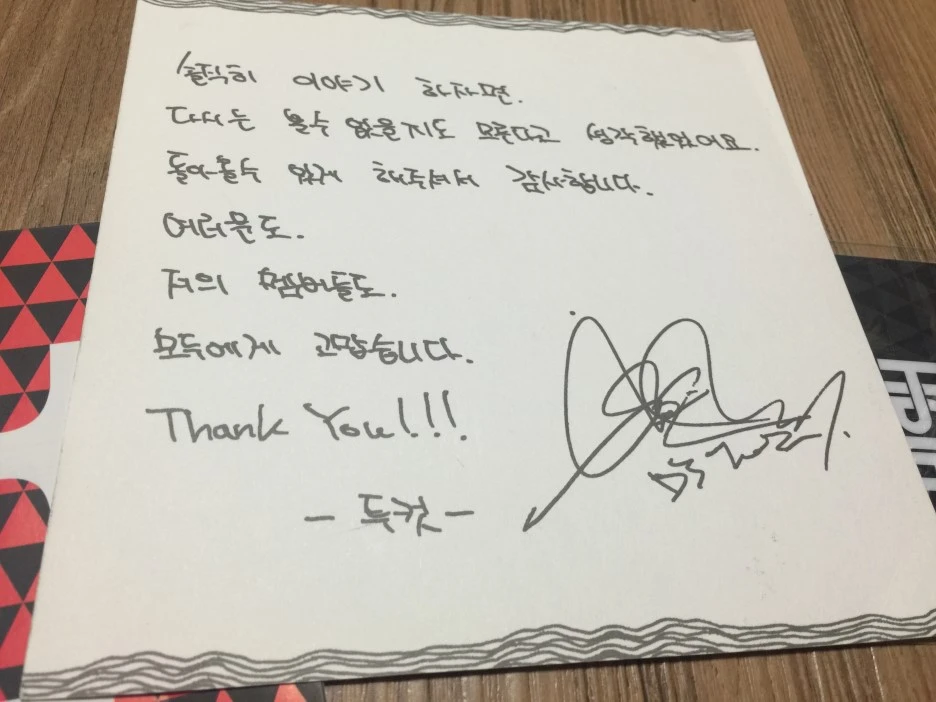 솔직히 이야기 하자면.
다시는 볼수 없을지도 모른다고 생각했었어요.
돌아올수 있게 해주셔서 감사합니다.
여러분도.
저의 멤버들도.
모두에게 고맙습니다.
Thank You!!!
- 투컷 -